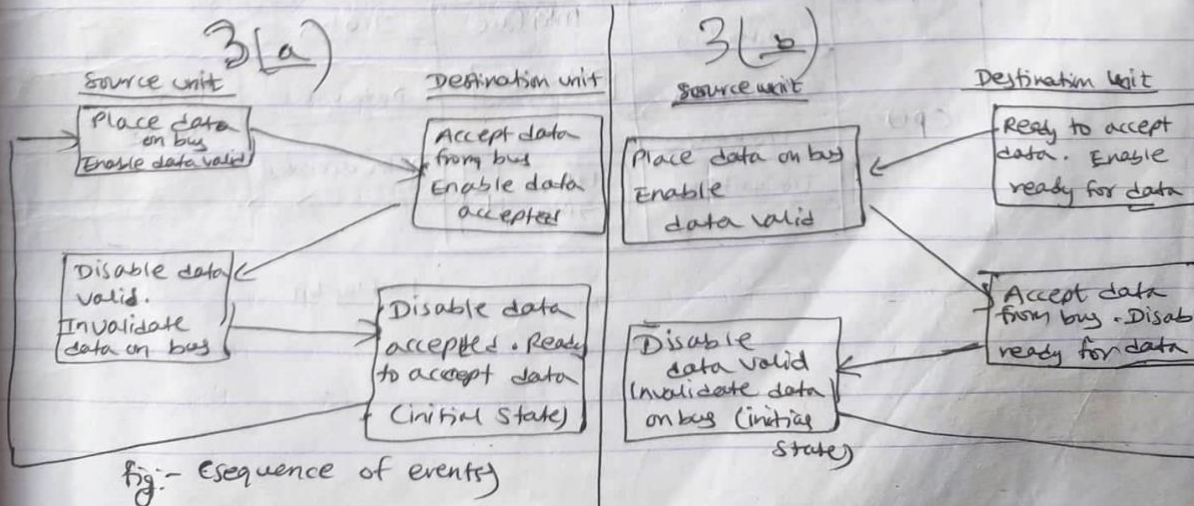 3(a)
Source unit
Destination unit
Place data
on bus
Enable data valid
Accept data
from bus
Enable data
accepted
Disable data
valid.
Invalidate
data on bus
Disable data
accepted. Ready
to accept data
(initial State)
fig:- (sequence of events)
3(b)
source unit
Destination Unit
Place data on bus
Enable
data valid
Ready to accept
data. Enable
ready for data
Accept data
from bus. Disab
ready for data
Disable
data valid
Invalidate data
on bus (initial
State)